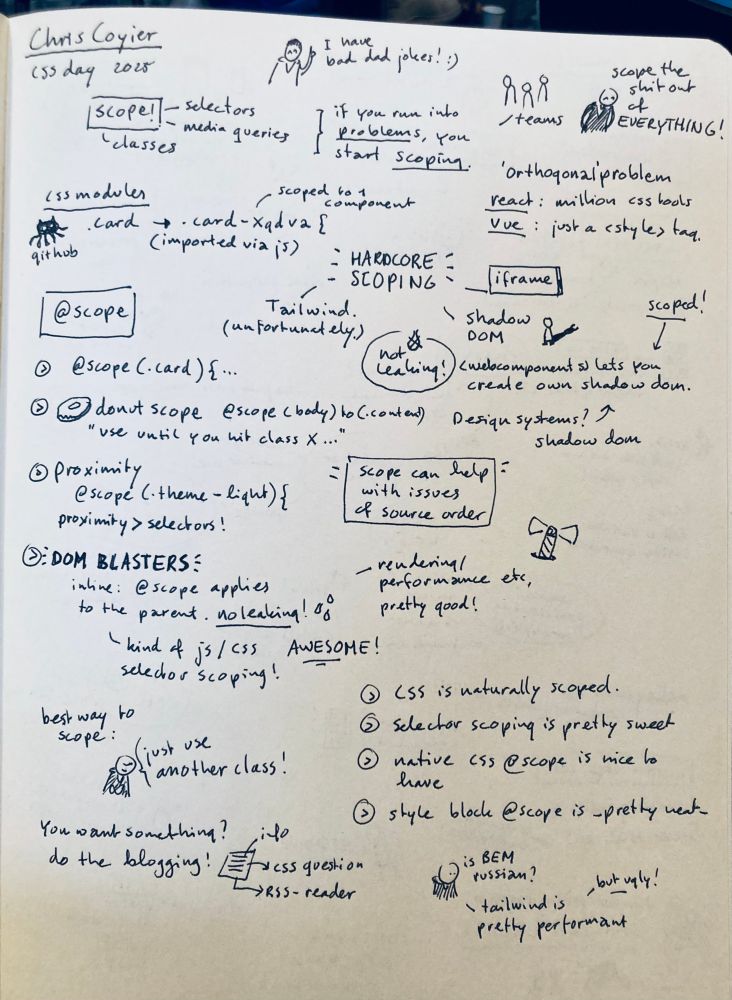 Chris Coyier
css day 2025
I have
bad dad jokes! :)
scope the
shit out
of
EVERYTHING!
teams
scope!
selectors
media queries
classes
if you run into
problems, you
start scoping.
'orthogonal' problem
react : million css tools
vue : just a <style> tag.
css modules
scoped to 1
component
github
.card → .card-xqdva {
(imported via js)
HARDCORE
SCOPING
iframe
Tailwind.
(unfortunately.)
shadow
DOM
scoped!
not
leaking!
<webcomponents> lets you
create own shadow dom.
Design systems?
shadow dom
@scope
@scope (.card) { ...
donut scope @scope (body) to (.content)
"use until you hit class X ..."
proximity
@scope (.theme-light) {
proximity > selectors!
scope can help
with issues
of source order
DOM BLASTERS
inline: @scope applies
to the parent. no leaking!
kind of js / css AWESOME!
selector scoping!
rendering/
performance etc,
pretty good!
css is naturally scoped.
selector scoping is pretty sweet
native css @scope is nice to
have
style block @scope is _pretty neat_
best way to
scope:
just use
another class!
You want something?
do the blogging!
info
css question
RSS-reader
is BEM
russian?
but ugly!
tailwind is
pretty performant